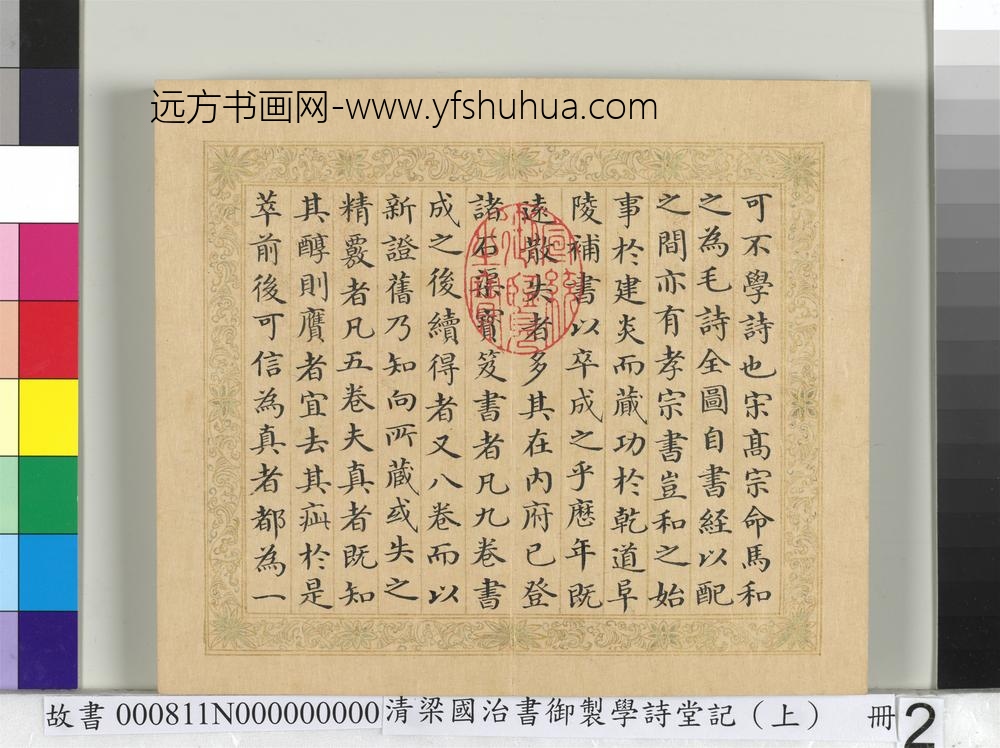 远方书画网-www.yfshuhua.com
可不學詩也宋髙宗命馬和
之為毛詩全圖自書經以配
之間亦有孝宗書豈和之始
事於建炎而蕆功於乾道阜
陵補書以卒成之乎歴年既
逺散失者多其在内府已登
諸石渠寶笈書者凡九卷書
成之後續得者又八卷而以
新證舊乃知向所蔵或失之
精覈者凡五卷夫真者既知
其醇則贋者宜去其疵於是
萃前後可信為真者都為一
故書 000811N000000000 清梁國治書御製學詩堂記（上） 冊 2